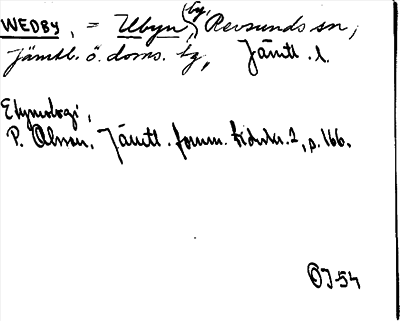 WEDBY, = Ubyn, (by,) Revsunds sn,
Jämtl. ö. doms. tg, Jämtl. l.
Etymologi,
P. Olsson, Jämtl. fornm. tidskr. 2, p. 166.
OJ 54